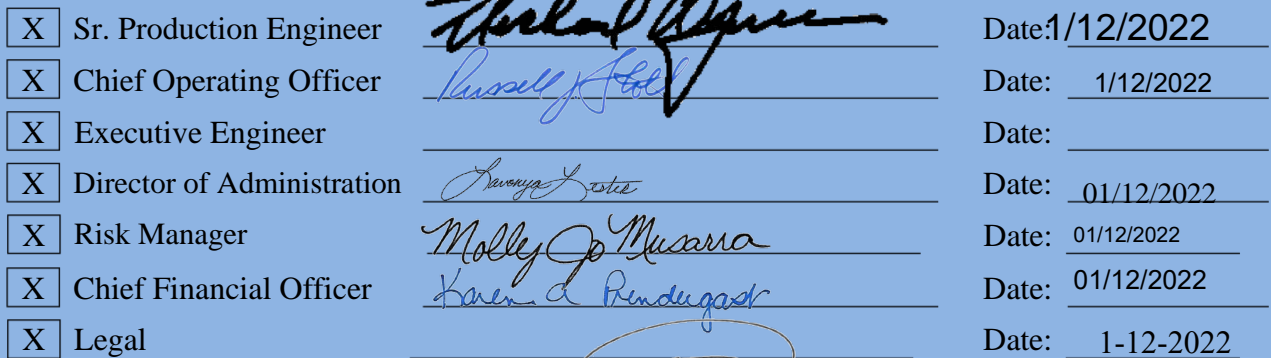 X Sr. Production Engineer Date: 1/12/2022
X Chief Operating Officer Russell J Date: 1/12/2022
X Executive Engineer Date:
X Director of Administration Date: 01/12/2022
X Risk Manager Molly Jo Musarra Date: 01/12/2022
X Chief Financial Officer Karen a Prendergast Date: 01/12/2022
X Legal Date: 1-12-2022